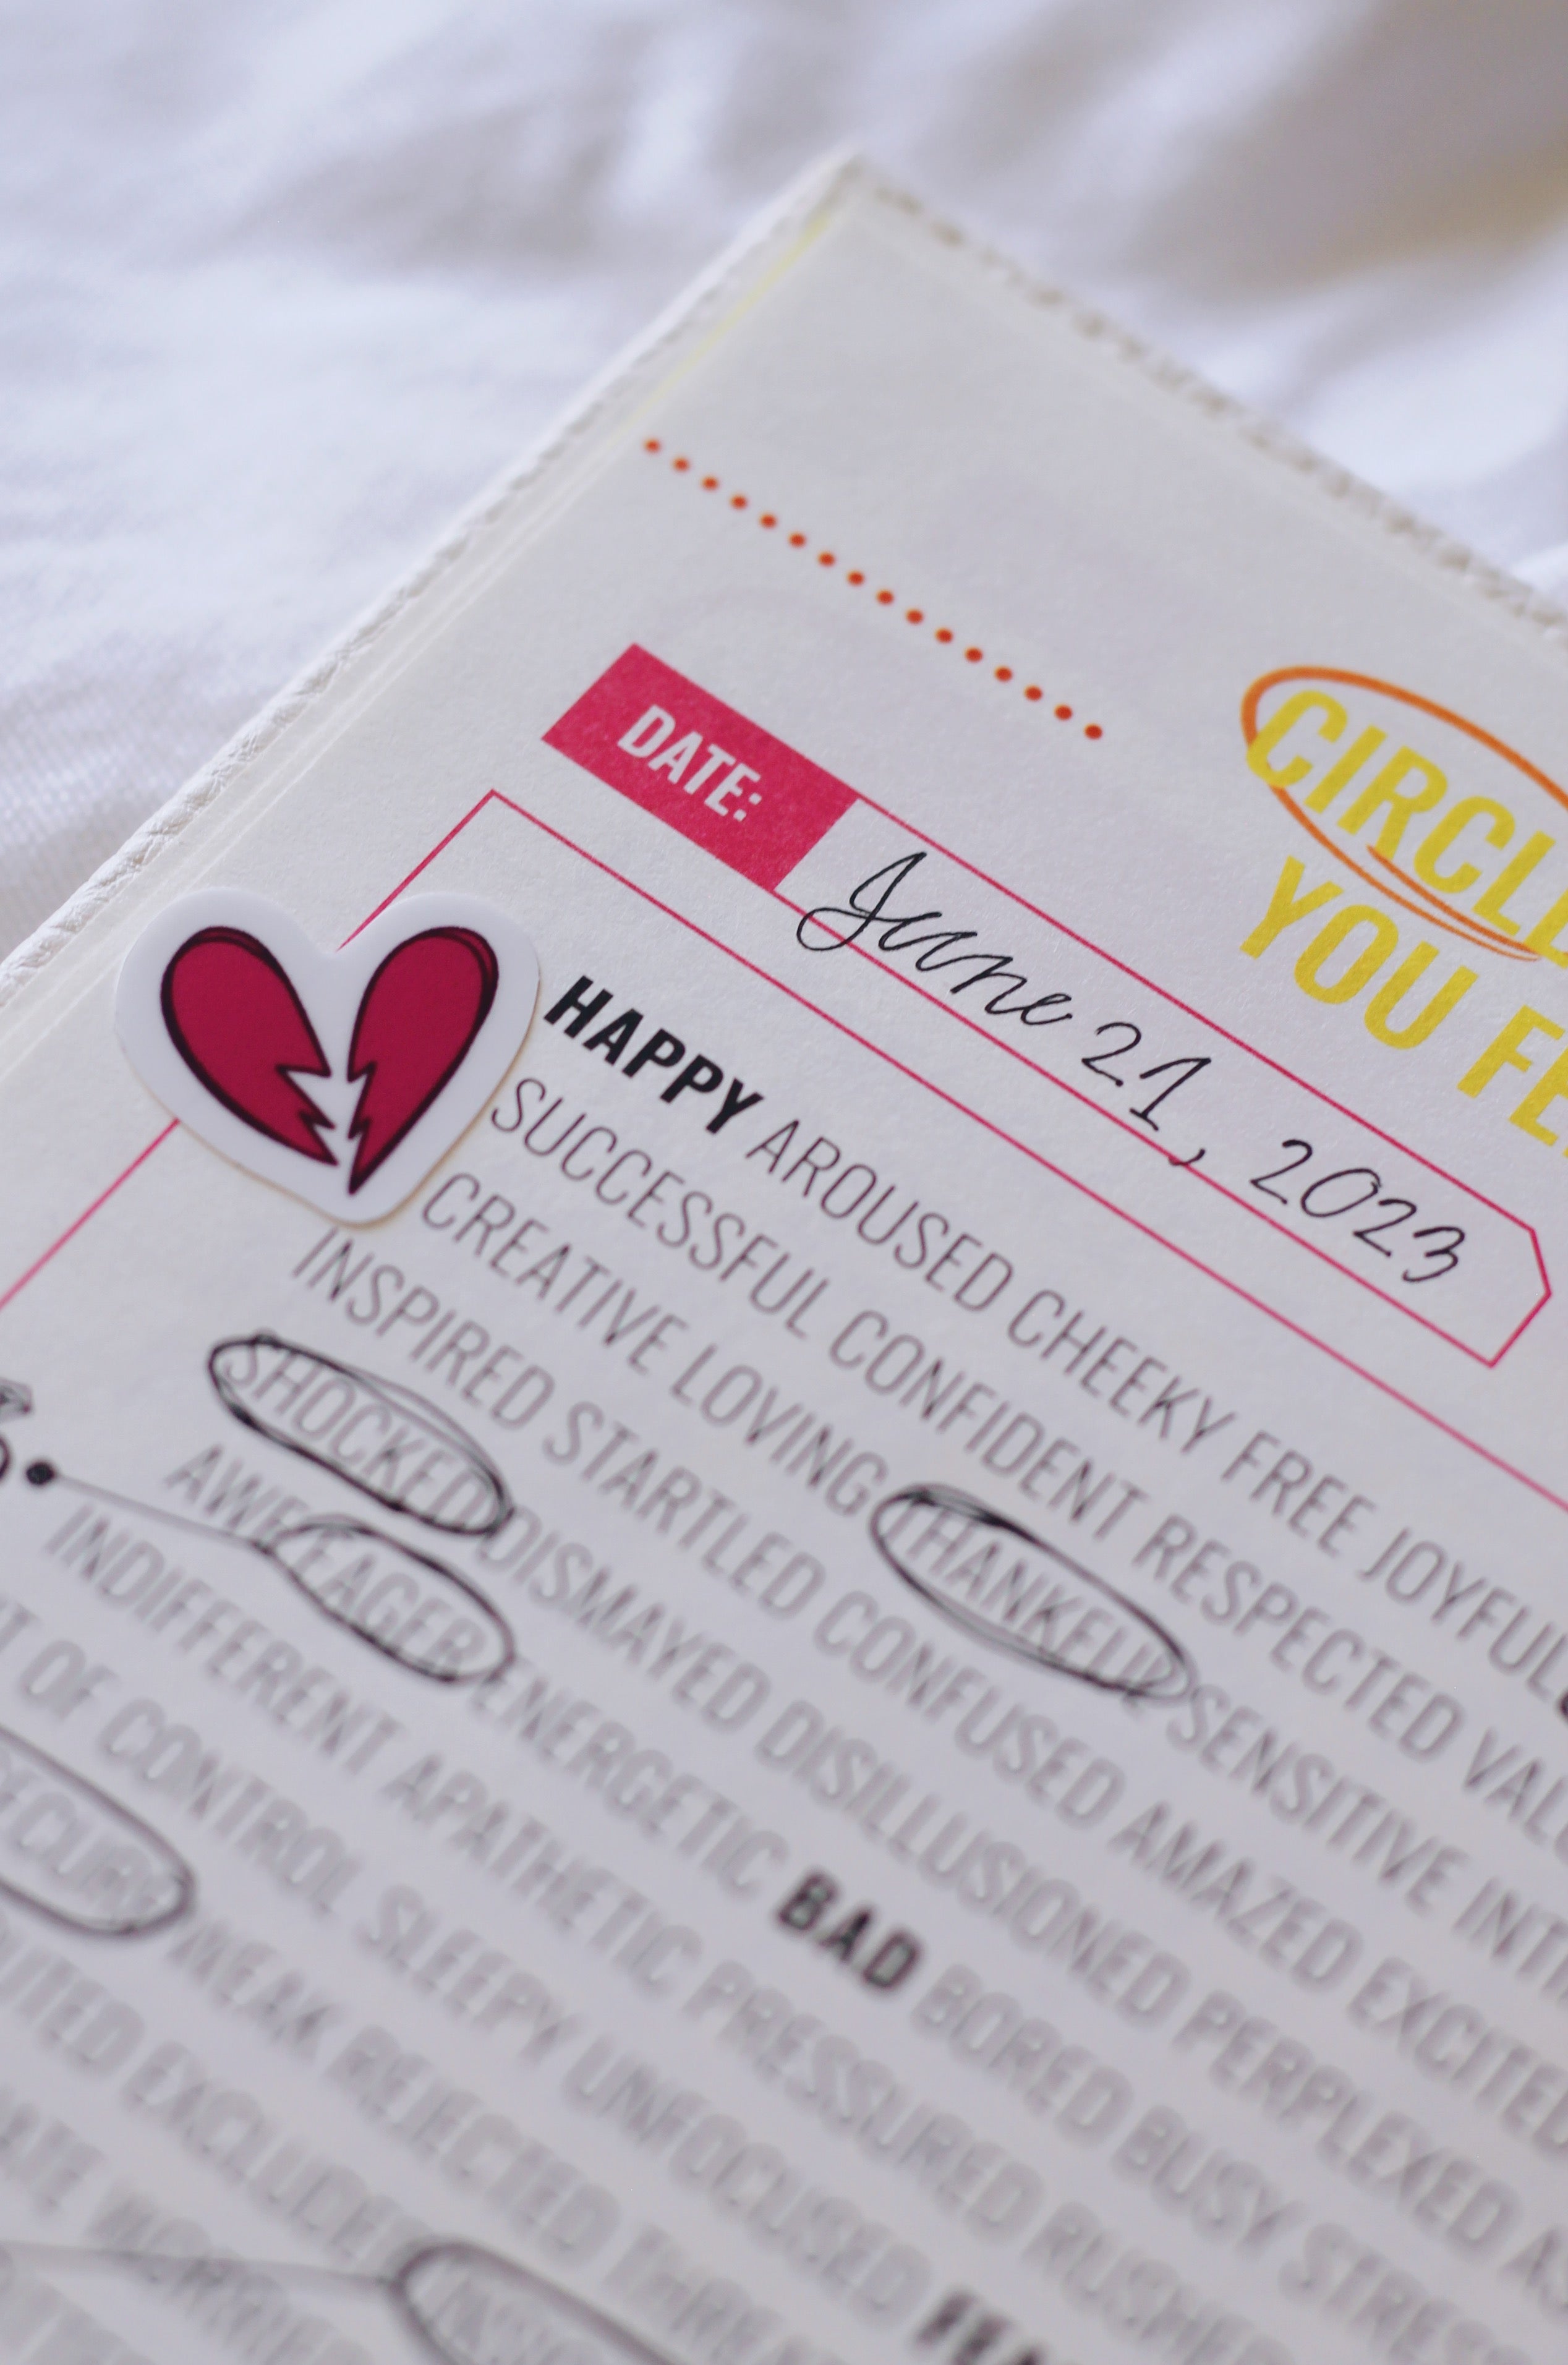 CIRCLE
YOU FE
DATE: June 21, 2023
HAPPY AROUSED CHEEKY FREE JOYFUL
SUCCESSFUL CONFIDENT RESPECTED VALU
CREATIVE LOVING THANKFUL SENSITIVE INTI
INSPIRED STARTLED CONFUSED AMAZED EXCITED
SHOCKED DISMAYED DISILLUSIONED PERPLEXED AS
AWE EAGER ENERGETIC BAD BORED BUSY STRESS
INDIFFERENT APATHETIC PRESSURED RUSHE
T OF CONTROL SLEEPY UNFOCUSED FEA
ECURE WEAK REJECTED THREA
EXCLUDED
WORRIED